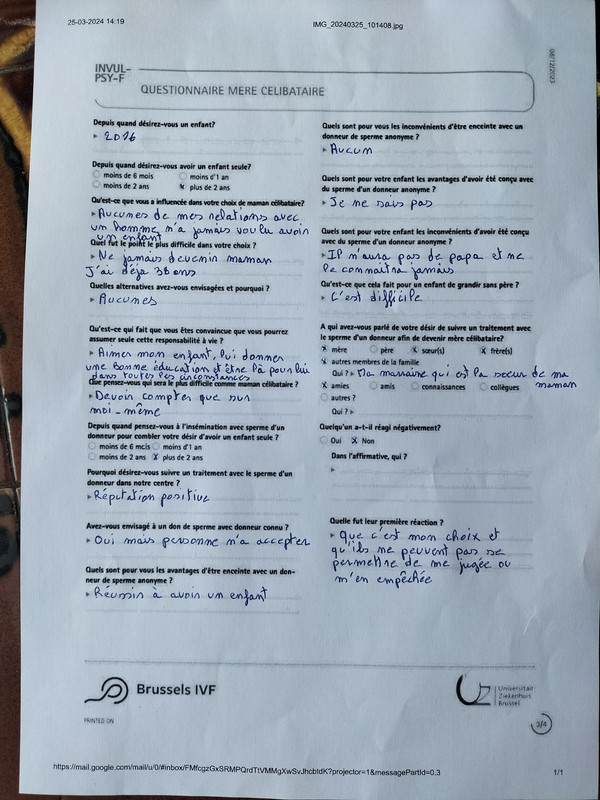 25-03-2024 14:19
IMG_20240325_101408.jpg
08/12/2023
INVUL-
PSY-F
QUESTIONNAIRE MERE CELIBATAIRE
Depuis quand désirez-vous un enfant?
2016
Depuis quand désirez-vous avoir un enfant seule?
moins de 6 mois moins d'1 an
moins de 2 ans x plus de 2 ans
Qu'est-ce que vous a influencée dans votre choix de maman célibataire?
Aucunes de mes relations avec
un homme n'a jamais voulu avoir
un enfant
Quel fut le point le plus difficile dans votre choix ?
Ne jamais devenir maman
J'ai déja 38 ans
Quelles alternatives avez-vous envisagées et pourquoi ?
Aucunes
Qu'est-ce qui fait que vous êtes convaincue que vous pourrez
assumer seule cette responsabilité à vie ?
Aimer mon enfant, lui donner
une bonne éducation et être là pour lui
dans toutes les circonstances
Que pensez-vous qui sera le plus difficile comme maman célibataire ?
Devoir compter que sur
moi-même
Depuis quand pensez-vous à l'insémination avec sperme d'un
donneur pour combler votre désir d'avoir un enfant seule ?
moins de 6 mois moins d'1 an
moins de 2 ans x plus de 2 ans
Pourquoi désirez-vous suivre un traitement avec le sperme d'un
donneur dans notre centre ?
Réputation positive
Avez-vous envisagé à un don de sperme avec donneur connu ?
Oui mais personne n'a accepter
Quels sont pour vous les avantages d'être enceinte avec un don-
neur de sperme anonyme ?
Réussir à avoir un enfant
Quels sont pour vous les inconvénients d'être enceinte avec un
donneur de sperme anonyme ?
Aucum
Quels sont pour votre enfant les avantages d'avoir été conçu avec
du sperme d'un donneur anonyme ?
Je ne sais pas
Quels sont pour votre enfant les inconvénients d'avoir été conçu
avec du sperme d'un donneur anonyme ?
Il n'aura pas de papa et ne
le connaitra jamais
Qu'est-ce que cela fait pour un enfant de grandir sans père ?
C'est difficile
A qui avez-vous parlé de votre désir de suivre un traitement avec
le sperme d'un donneur afin de devenir mère célibataire?
x mère père x sœur(s) x frère(s)
x autres membres de la famille
Qui ? Ma marraine qui est la sœur de ma
maman
x amies amis connaissances collègues
autres ?
Qui ?
Quelqu'un a-t-il réagi négativement?
Oui x Non
Dans l'affirmative, qui ?
Quelle fut leur première réaction ?
Que c'est mon choix et
qu'ils ne peuvent pas se
permettre de me jugée ou
m'en empêchée
Brussels IVF
Universitair
Ziekenhuis
Brussel
PRINTED ON
3/4
https://mail.google.com/mail/u/0/#inbox/FMfcgzGxSRMPQrdTtVMMgXwSvJhcbtdK?projector=1&messagePartId=0.3
1/1